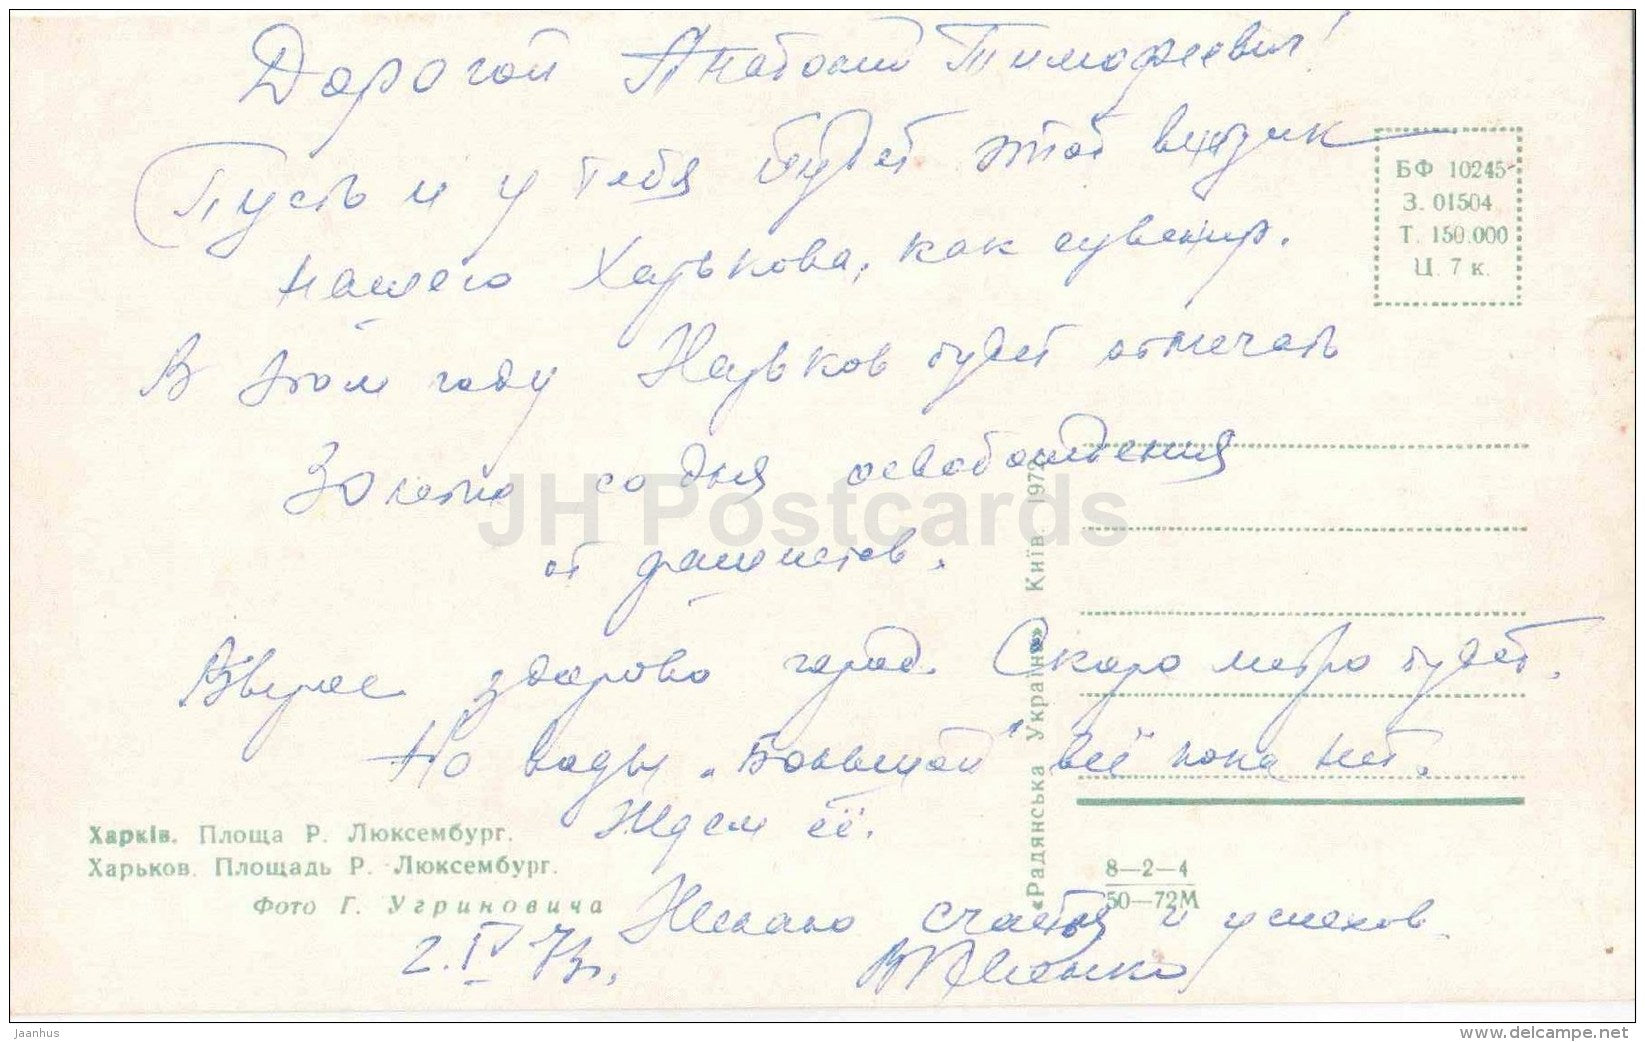 Дорогой Анатолий Тимофеевич!
Пусть и у тебя будет этот видик
нашего Харькова, как сувенир.
В этом году Харьков будет отмечать
30 летие со дня освобождения
от фашистов.
Вырос здорово город. Скоро метро будет.
Но воды „большой“ всё пока нет.
Ждем её.
Желаю счастья и успехов.
2.IV 73г.
БФ 10245
З. 01504
Т. 150.000
Ц. 7 к.
«Радянська Україна» Київ 1972
Харків. Площа Р. Люксембург.
Харьков. Площадь Р. Люксембург.
Фото Г. Угриновича
8—2—4
50—72М
JH Postcards
jaanhus
www.delcampe.net